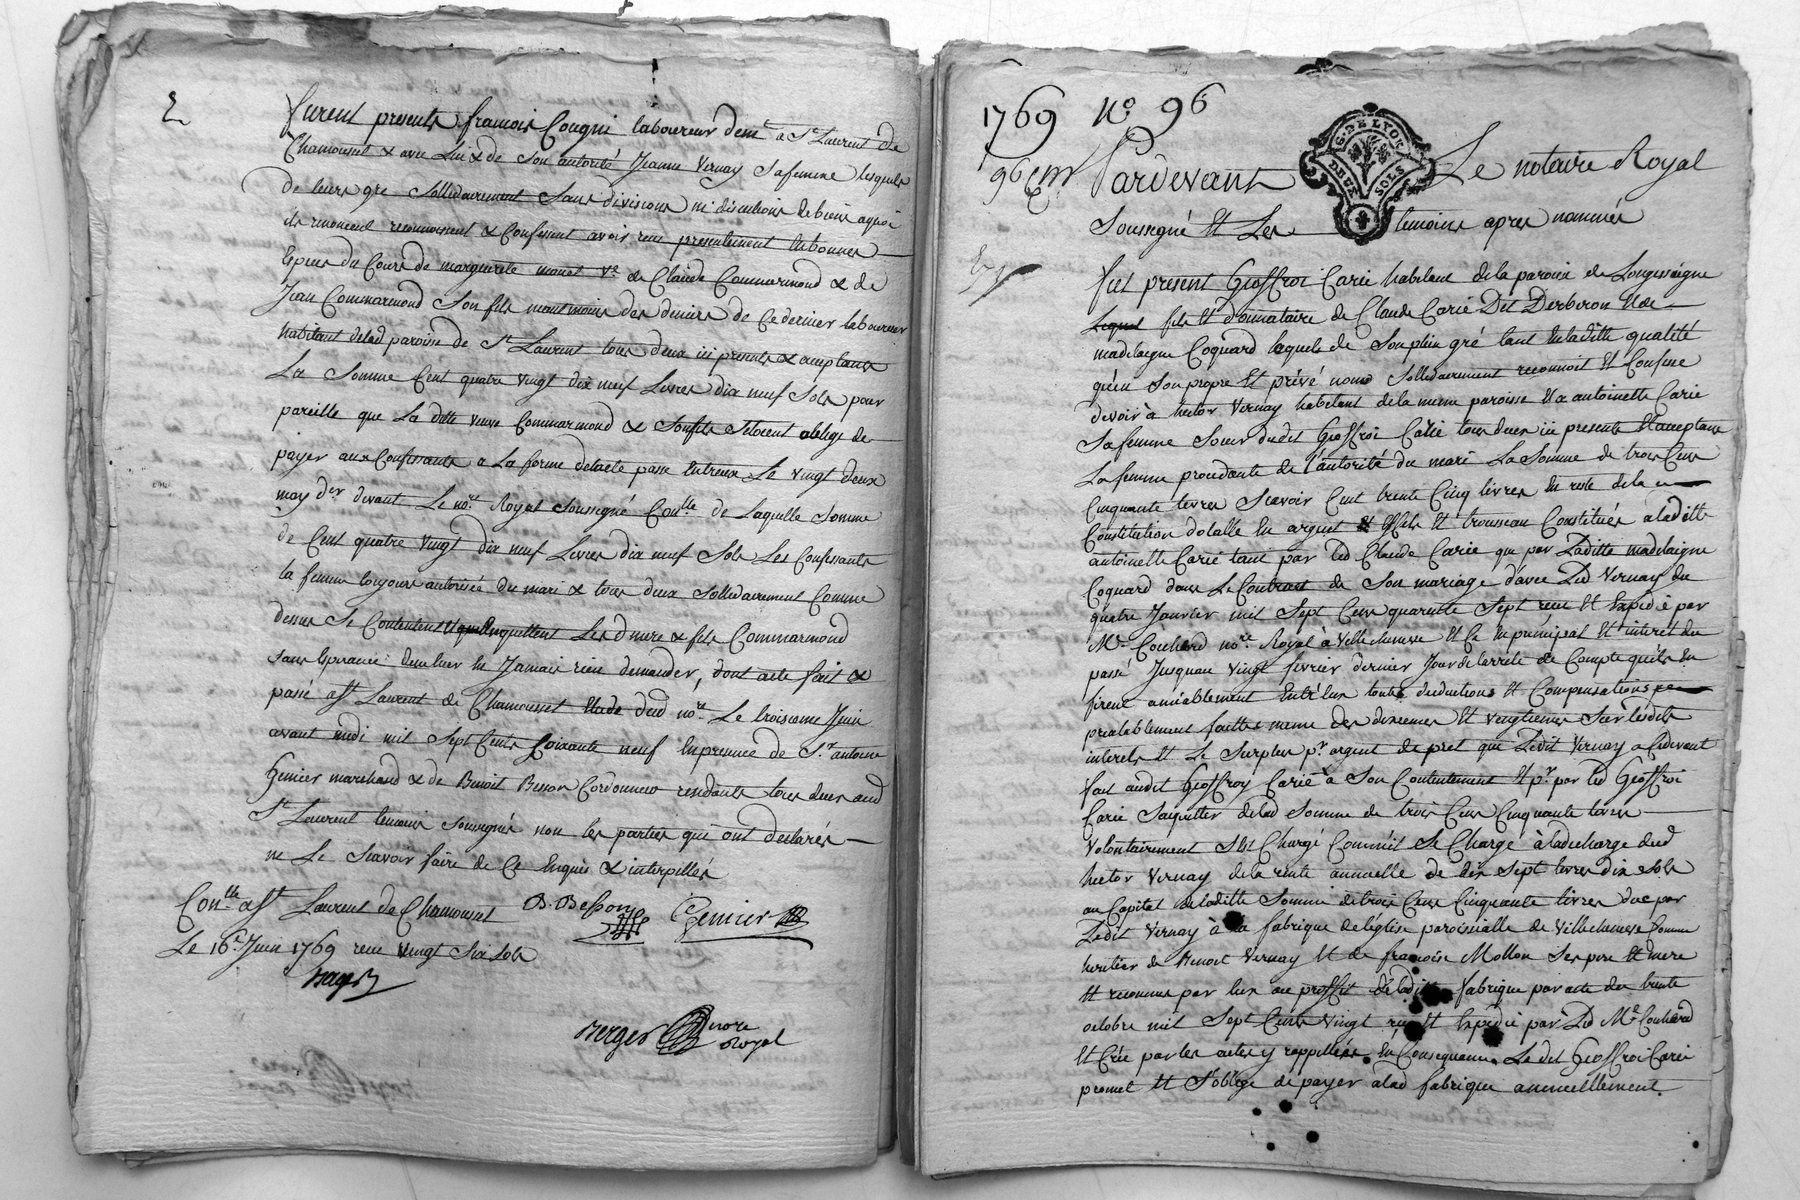 furent presents francois Cougni laboureur dem.t a S.t Laurent de
Chamousset & avec lui & de son autorité Jeanne Vernay sa femme lesquels
de leurs gré sollidairement sans divisions ni discutions de biens aquoi
ils renoncent reconnoissent & Confessent avoir reus presentement en bonnes
Especes du Cours de marguerite monet v.e de Claude Commarmond & de
Jean Commarmond son fils neantmoins des deniers de Ce dernier laboureur
habitant delad paroisse de S.t Laurent tous deux ici presents & aceptants
La somme Cent quatre vingt dix neuf Livres dix neuf Sols pour
pareille que La ditte veuve Commarmond & son fils s'etoient obligé de
payer aux Confessants a La forme delacte passé Entreux Le vingt deux
may d.er devant Le no.re Royal soussigné Con.lle de Laquelle somme
de Cent quatre vingt dix neuf Livres dix neuf Sols Les Confessants
la femme toujours autorisée du mari & tous deux sollidairement Comme
dessus se Contentent quittent Les d mere & fils Commarmond
sans Esperance den leur En Jamais rien demander, dont acte fait &
passé a S.t Laurent de Chamousset Etude dud no.re Le troisieme Juin
avant midi mil sept Cents soixante neuf En presence de S.r antoine
Gemier marchand & de Benoit Besson Cordonnier residants tous deux aud
S.t Laurent temoins soussignés non les parties qui ont declarés
ne Le scavoir faire de Ce Enquis & interpellés
Con.lle a S.t Laurent de Chamousset B. Besson Gemier
Le 16.e Juin 1769 reus vingt Six sols
Berger nore
Royal
1769 N.o 96
G. DE LYON
DEUX SOLS
Pardevant Le notaire Royal
Soussigné Et Les temoins apres nommés
fut present Geoffroi Carié habitant dela paroisse de Longessaigne
Lequel fils Et donnataire de Claude Carié Dit Derboron Et de
madelaigne Coquard lequels de son plein gré tant En laditte qualité
qu'en son propre Et privé nom sollidairement reconnoit Et Confesse
devoir à hector Vernay habitant dela meme paroisse Et a antoinette Carié
sa femme soeur dudit Geoffroi Carié tous deux ici presents Et aceptans
La femme procedante de l'autorité du mari La somme de trois Cens
Cinquante livres scavoir Cent trente Cinq livres En reste dela
Constitution dotalle En argent Effets Et trousseau Constitués a laditte
antoinette Carié tant par led Claude Carié que par Laditte madelaigne
Coquard dans Le Contract de son mariage d'avec Led Vernay du
quatre Janvier mil sept Cens quarante sept reçu Et Expedié par
M.e Couhard no.re Royal à Villechenesve Et Ce En principal Et interet du
passé Jusquau vingt fevrier dernier Jour de larreté de Compte quils En
firent amiablement Entre Eux toutes deductions Et Compensations
prealablement faittes meme des dixiemes Et vingtiemes sur lesdits
interets Et Le surplus p.r argent de pret que Ledit Vernay a Cidevant
fait audit Geoffroy Carié à son Contentement Et p.r par led Geoffroi
Carié saquitter delad somme de trois Cens Cinquante livres
volontairement s'est Chargé Comme il se Charge à la decharge dud
hector Vernay dela rente annuelle de dix sept livres dix sols
au Capital de laditte somme de trois Cens Cinquante livres due par
Ledit Vernay à la fabrique de l'église paroissialle de Villechenesve Comme
heritier de Benoit Vernay Et de francoise Mollon ses pere Et mere
Et reconnus par Eux au proffit de laditte fabrique par acte du trente
octobre mil sept Cents vingt reçu Et Expedié par Led M.e Couhard
Et Créé par les actes y rappellés. En Consequence Ledit Geoffroi Carié
promet Et s'oblige de payer alad fabrique annuellement